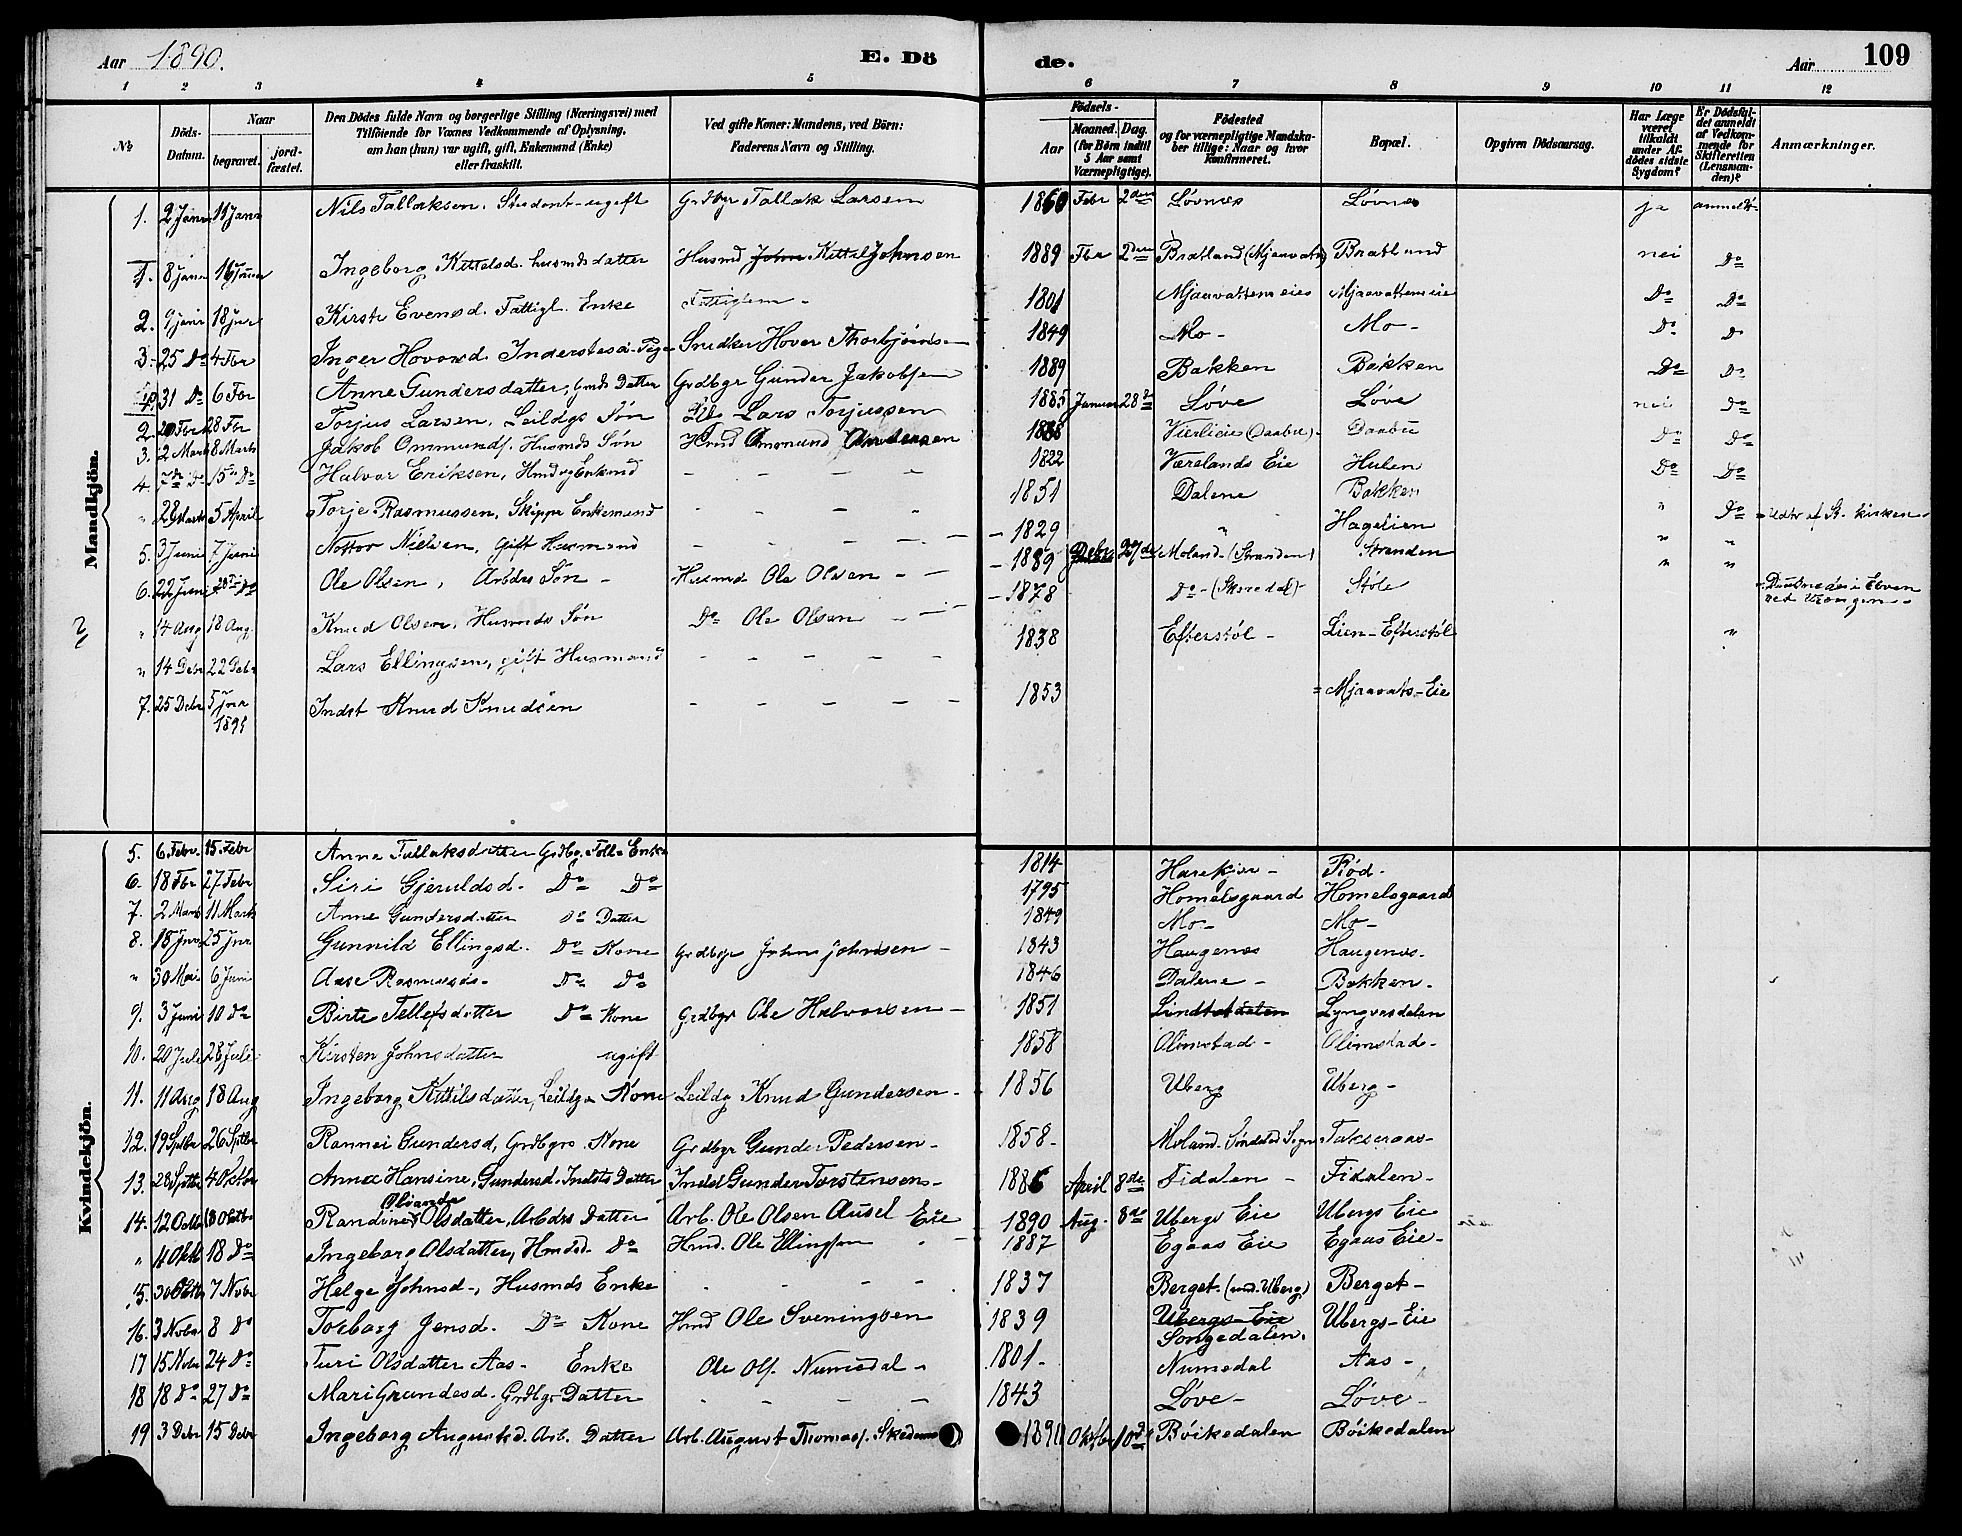 Aar 1890. E. Dö de. Aar 109
1 2 3 4 5 6 7 8 9 10 11 12
No
Döds-Datum.
Naar
begravet.
jord-fæstet.
Den Dödes fulde Navn og borgerlige Stilling (Næringsvei) med
Tilföiende for Voxnes Vedkommende af Oplysning,
om han (hun) var ugift, gift, Enkemand (Enke)
eller fraskilt.
Ved gifte Koner: Mandens, ved Börn:
Faderens Navn og Stilling.
Födsels-
Aar
Maaned. Dag.
(for Børn indtil
5 Aar samt
Værnepligtige).
Födested
og for værnepligtige Mandska-
ber tillige: Naar og hvor
Konfirmeret.
Bopæl.
Opgiven Dödsaarsag.
Har Læge
været
tilkaldt
under Af-
dødes sidste
Sygdom?
Er Dödsfal-
det anmeldt
af Vedkom-
mende for
Skifteretten
(Lensman-
den)?
Anmærkninger.
Mandkjön.
1. 2 Janr 11 Janr Nils Tallaksen. Student - ugift Grdbgr Tallak Larsen 1860 Febr 2den Løvnes Løvnes ja anmeldt
1. 8 Janr 16 Januar Ingeborg Kittelsd. husmds datter Husmd John Kittel Johnsen 1889 Fbr 2den Bratland (Mjaavatn) Bratland nei Do
2. 9 Janr 18 Janr Kirsti Evensd. Fattigl. Enke Fattiglem - 1801 Mjaavattens eie Mjaavattens eie Do Do
3. 25 Do 4 Fbr Inger Hovorsd. Snedker Hover Thorbjørns 1849 Mo - Mo - Do Do
4. 31 Do 6 Fbr Anne Gundersdatter, Gmds Datter Grdbgr Gunder Jakobsen 1889 Bakken Bakken Do Do
2. 20 Fbr 28 Fbr Torjus Larsen, Leildgs Søn Lars Torjussen 1885 Januar 28de Løve Løve nei Do
3. 2 Mars 8 Marts Jakob Ommunds. Husmds Søn Hmd Ommund Andersen 1888 Daabu Do Do
4. 7de Do 15de Do Halvor Eriksen, Hmd og Enkmd - - - 1822 Værelands Eie Hulen Do Do
" 28 Marts 5 April Torje Rasmussen, Skipper Enkemand - - - - 1851 Dalene Bakken " Do Udtr af St. kirken
5. 3 Juni 7 Juni Nottov Nielsen, gift Husmand - - - - - 1829 " Hagelien " "
6. 22 Juni 28de Do Ole Olsen, Arbdrs Søn - Husmd Ole Olsen - - 1889 Debr 27de Moland - (Stranden) Stranden " "
" 14 Aug 18 Aug. Knud Olsen, Husmds Søn Do Ole Olsen - - 1878 Do - Støle Druknede i Elven
" 14 Debr 22 Debr Lars Ellingsen, gift Husmand - - - - - 1838 Efterstøl - Lien - Efterstøl "
7. 25 Debr 5 Jnr 1891 Indst Knud Knudsen - - - - - 1853 Mjaavats - Eie
Kvindekjön.
5. 6 Febr. 15 Febr Anne Tallaksdatter Grdbg. Enke 1814 Rød -
6. 18 Fbr 27 Febr Siri Gjeruldsd - Do Do 1795 Homelsgaard Homelsgaard
7. 2 Mars 11 Marts Anne Gundersdatter do Datter 1849 Mo - Mo -
8. 18 Jnr 25 Jnr. Gunnild Ellingsd. Do Kone Grdbgr John Johnsen - 1843 Haugenes Haugenes -
" 30 Mai 6 Juni Aase Rasmusds - Do Do 1846 Dalene - Bakken -
9. 3 Juni 10 Do Birte Tellefsdatter Do Kone Grdbgr Ole Halvorsen - 1851 Lyngrosdalen
10. 20 Juli 28 Juli Kirsten Johnsdatter ugift 1858 Olimstad - Olimstad -
11. 11 Aug 18 Aug Ingeborg Kittilsdatter, Leildgs Kone Leildg Knud Gundersen - 1856 Uberg Uberg -
12. 19 Sptbr 26 Sptbr Rannei Gundersd, Grdbgrs Kone Grdbgr Gunder Pedersen - 1858 - Moland - Søndeled Sogn Takseraas -
13. 28 Sptbr 4 Oktbr Anna Hansine, Gundersd. Indsts Datter Indst Gunder Torstensens - 1886 April 8de Fidalen - Fidalen -
14. 12 Octbr 18 Oktb Randine Olivande Olsdatter, Arbdrs Datter Arb. Ole Olsen Ausel Eie 1890 Aug. 8de Ubergs Eie Ubergs Eie
" 11 Oktb 18 Do Ingeborg Olsdatter, Hmdsd. Do Hmd. Ole Ellingsen 1887 Egaas Eie Egaas Eie -
15. 30 Oktb 7 Novbr Helge Johnsd -, Husmds Enke - - - - 1837 Berget - (und. Uberg) Berget -
16. 3 Novbr 8 Do Torborg Jensd. Do Kone Hmd Ole Sveningsen 1839 Ubergs Eie Songedalen. Ubergs - Eie
17 15 Novbr 24 Do Turi Olsdatter Aas - Enke Ole Ols. Numedal - 1801 - Numedal Aas -
18 18 Do 27 Do Mari Grundesd. Grdbgr Datter - - - - 1843 Løve - Løve -
19 3 Debr 15 Debr Ingeborg Augustsd. Arb. Datter Arb. August Thomass. 1890 Oktbr 10de Böikedalen Böikedalen